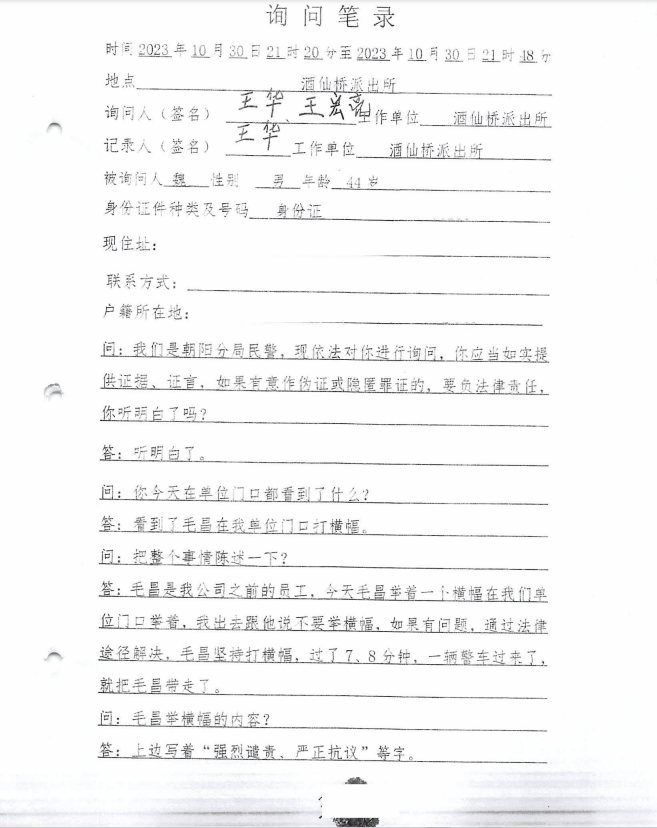 询问笔录
时间 2023 年 10 月 30 日 21 时 20 分至 2023 年 10 月 30 日 21 时 48 分
地点 酒仙桥派出所
询问人（签名） 王华、王宏亮 工作单位 酒仙桥派出所
记录人（签名） 王华 工作单位 酒仙桥派出所
被询问人 魏 性别 男 年龄 44 岁
身份证件种类及号码 身份证
现住址：
联系方式：
户籍所在地：
问：我们是朝阳分局民警，现依法对你进行询问，你应当如实提
供证据、证言，如果有意作伪证或隐匿罪证的，要负法律责任，
你听明白了吗？
答：听明白了。
问：你今天在单位门口都看到了什么？
答：看到了毛昌在我单位门口打横幅。
问：把整个事情陈述一下？
答：毛昌是我公司之前的员工，今天毛昌举着一个横幅在我们单
位门口举着，我出去跟他说不要举横幅，如果有问题，通过法律
途径解决，毛昌坚持打横幅，过了 7、8 分钟，一辆警车过来了，
就把毛昌带走了。
问：毛昌举横幅的内容？
答：上边写着“强烈谴责、严正抗议”等字。